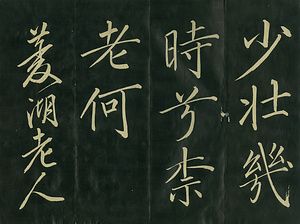 少壮幾
時兮柰
老何
菱湖老人